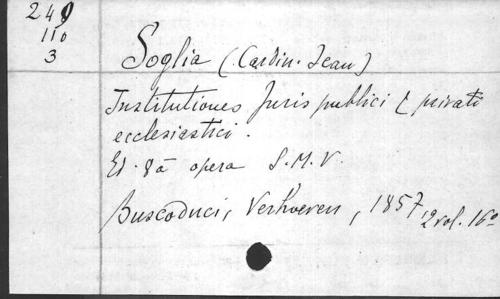 249
110
3
Soglia (Cardin. Jean)
Institutiones Juris publici & privati
ecclesiastici.
Ed. 8a opera S.M.V.
Buscoduci, Verhoeven, 1857, 2 vol. 16º